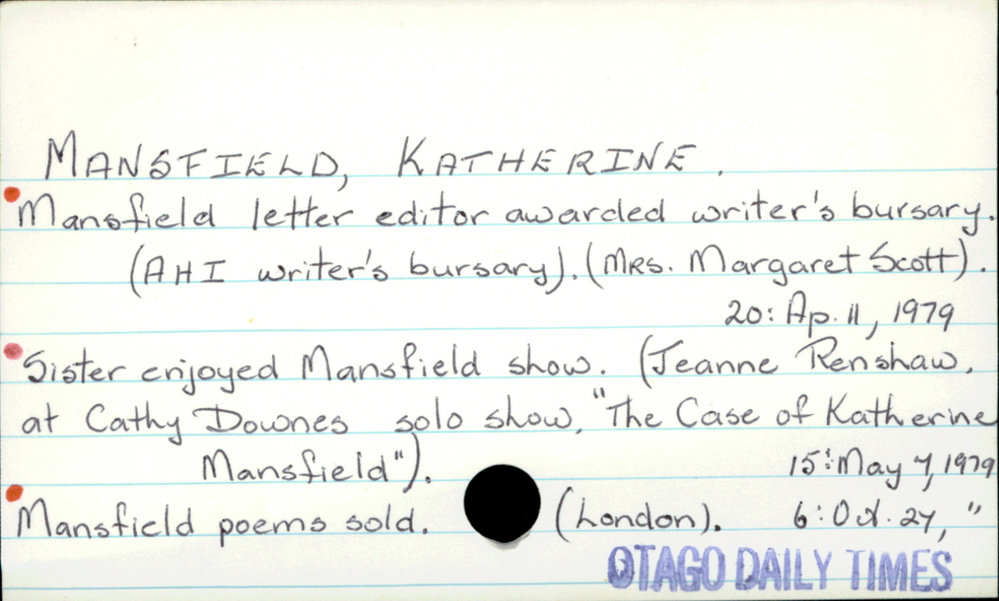 MANSFIELD, KATHERINE.
Mansfield letter editor awarded writer's bursary.
(AHI writer's bursary). (MRS. Margaret Scott).
20: Ap. 11, 1979
Sister enjoyed Mansfield show. (Jeanne Renshaw,
at Cathy Downes solo show, "The Case of Katherine
Mansfield"). 15: May 7, 1979
Mansfield poems sold. (London). 6: Oct. 27, "
OTAGO DAILY TIMES